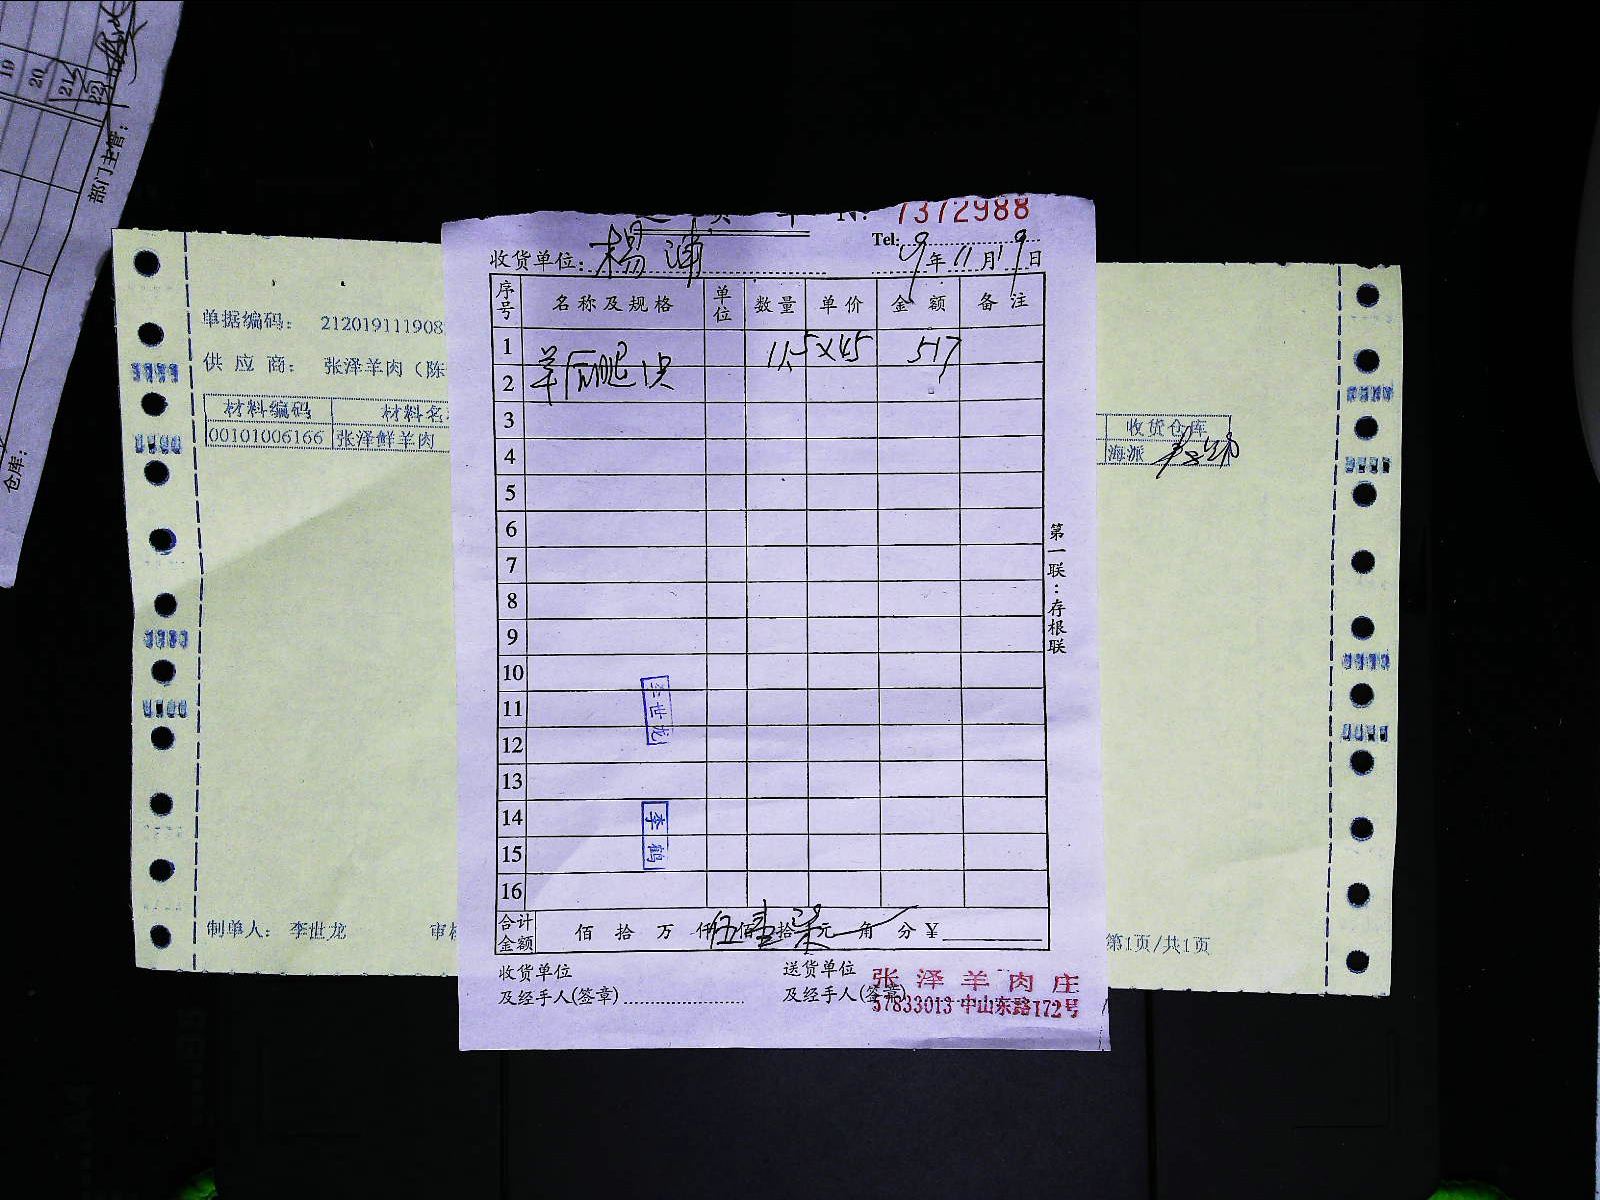 19
20
21
22
部门主管：
仓库：
No 7372988
Tel:
收货单位： 杨浦 19年11月19日
序号 名称及规格 单位 数量 单价 金额 备注
1 羊后腿块 11.5×45 517
2
3
4
5
6
7
8
9
10
11
12
13
14
15
16
李世龙
李鹤
第一联：存根联
合计金额 佰拾万仟伍佰壹拾柒元角分¥
收货单位
及经手人(签章)
送货单位
及经手人(签章)
张泽羊肉庄
57833013 中山东路172号
单据编码： 212019111908
供应商： 张泽羊肉（陈
材料编码 材料名
00101006166 张泽鲜羊肉
收货仓库
海派
制单人： 李世龙 审核
第1页/共1页